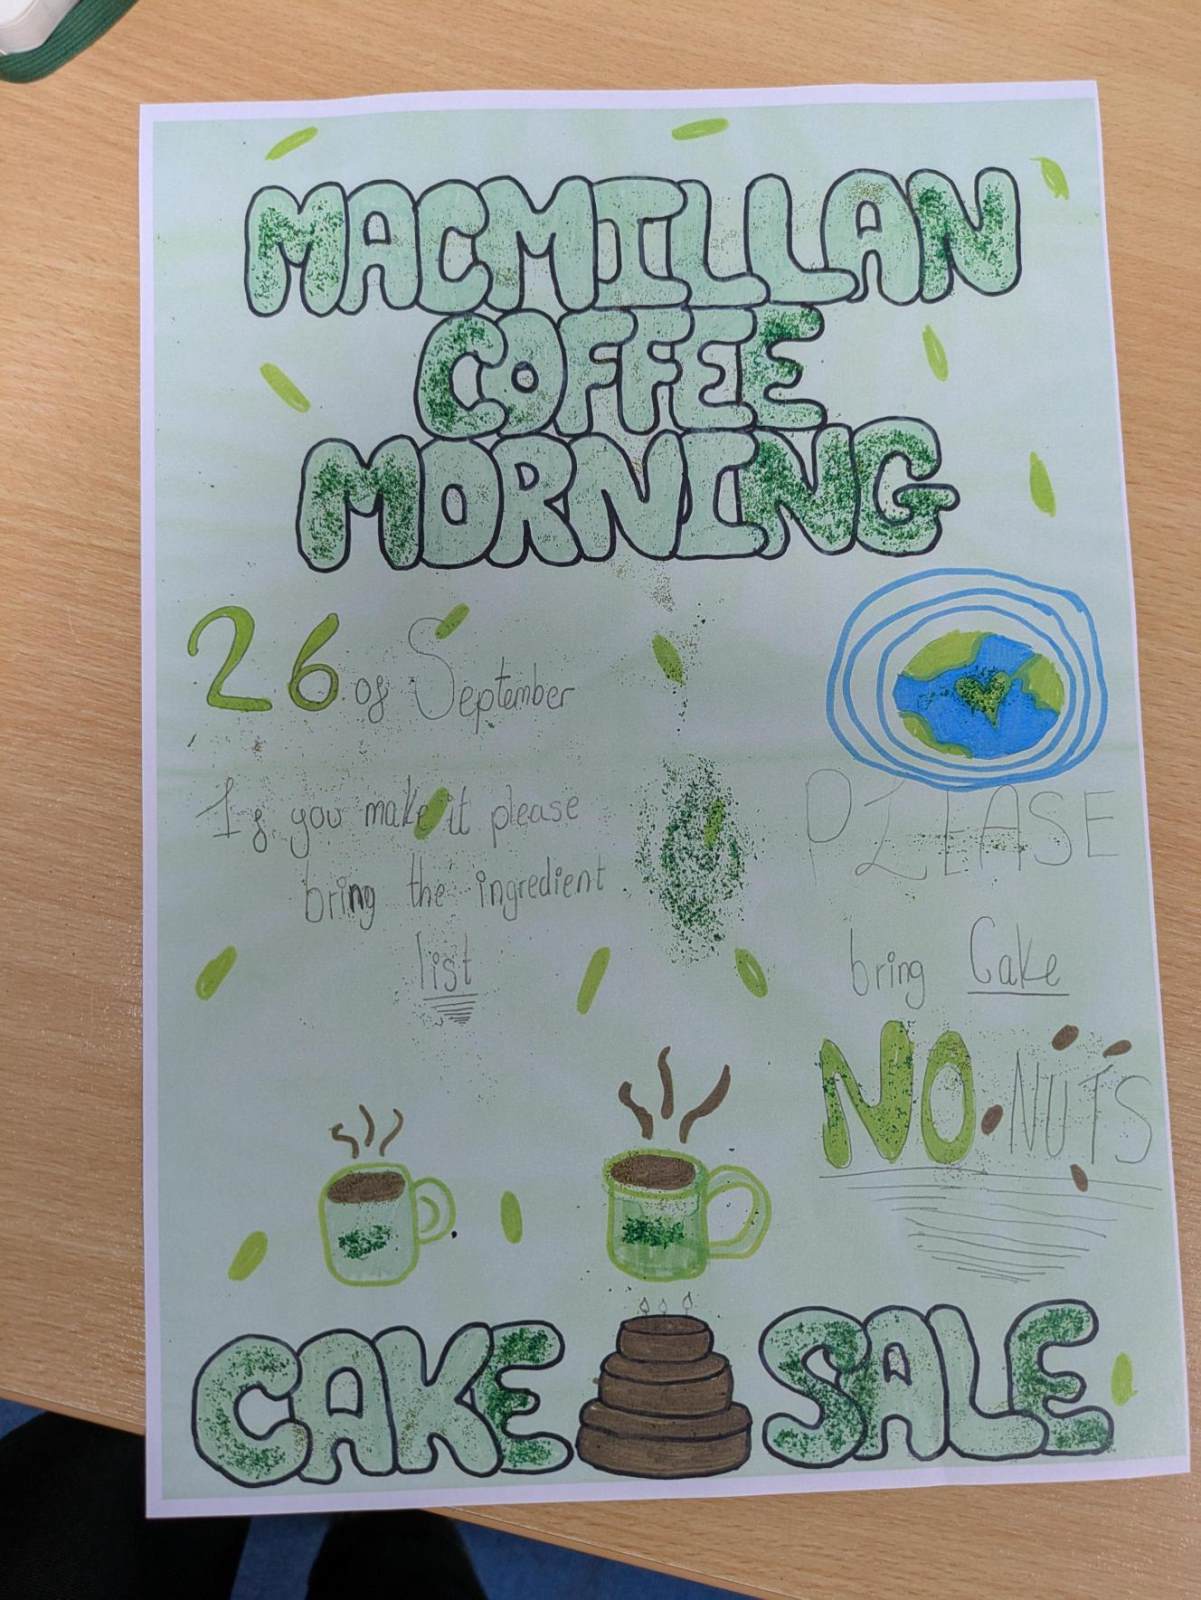 MACMILLAN
COFFEE
MORNING
26 of September
If you make it please
bring the ingredient
list
PLEASE
bring Cake
NO NUTS
CAKE SALE